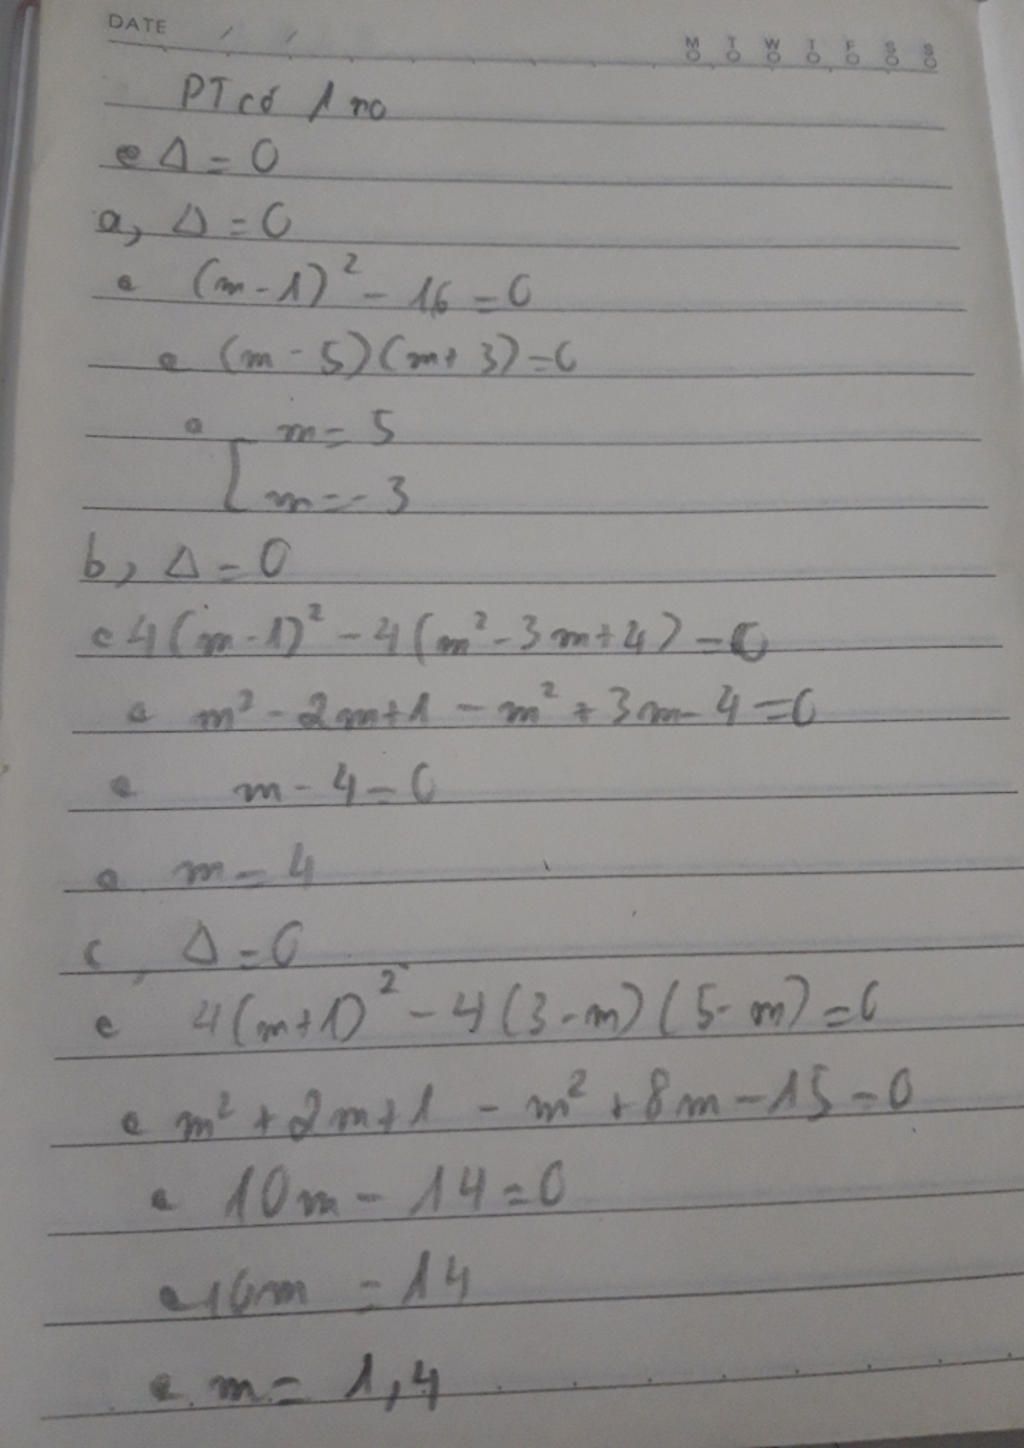 DATE / /
M T W T F S S
PT có 1 no
⇔ Δ = 0
a, Δ = 0
⇔ (m - 1)² - 16 = 0
⇔ (m - 5)(m + 3) = 0
⇔ [ m = 5
m = - 3
b, Δ = 0
⇔ 4(m - 1)² - 4(m² - 3m + 4) = 0
⇔ m² - 2m + 1 - m² + 3m - 4 = 0
⇔ m - 4 = 0
⇔ m = 4
c, Δ = 0
⇔ 4(m + 1)² - 4(3 - m)(5 - m) = 0
⇔ m² + 2m + 1 - m² + 8m - 15 = 0
⇔ 10m - 14 = 0
⇔ 10m = 14
⇔ m = 1,4